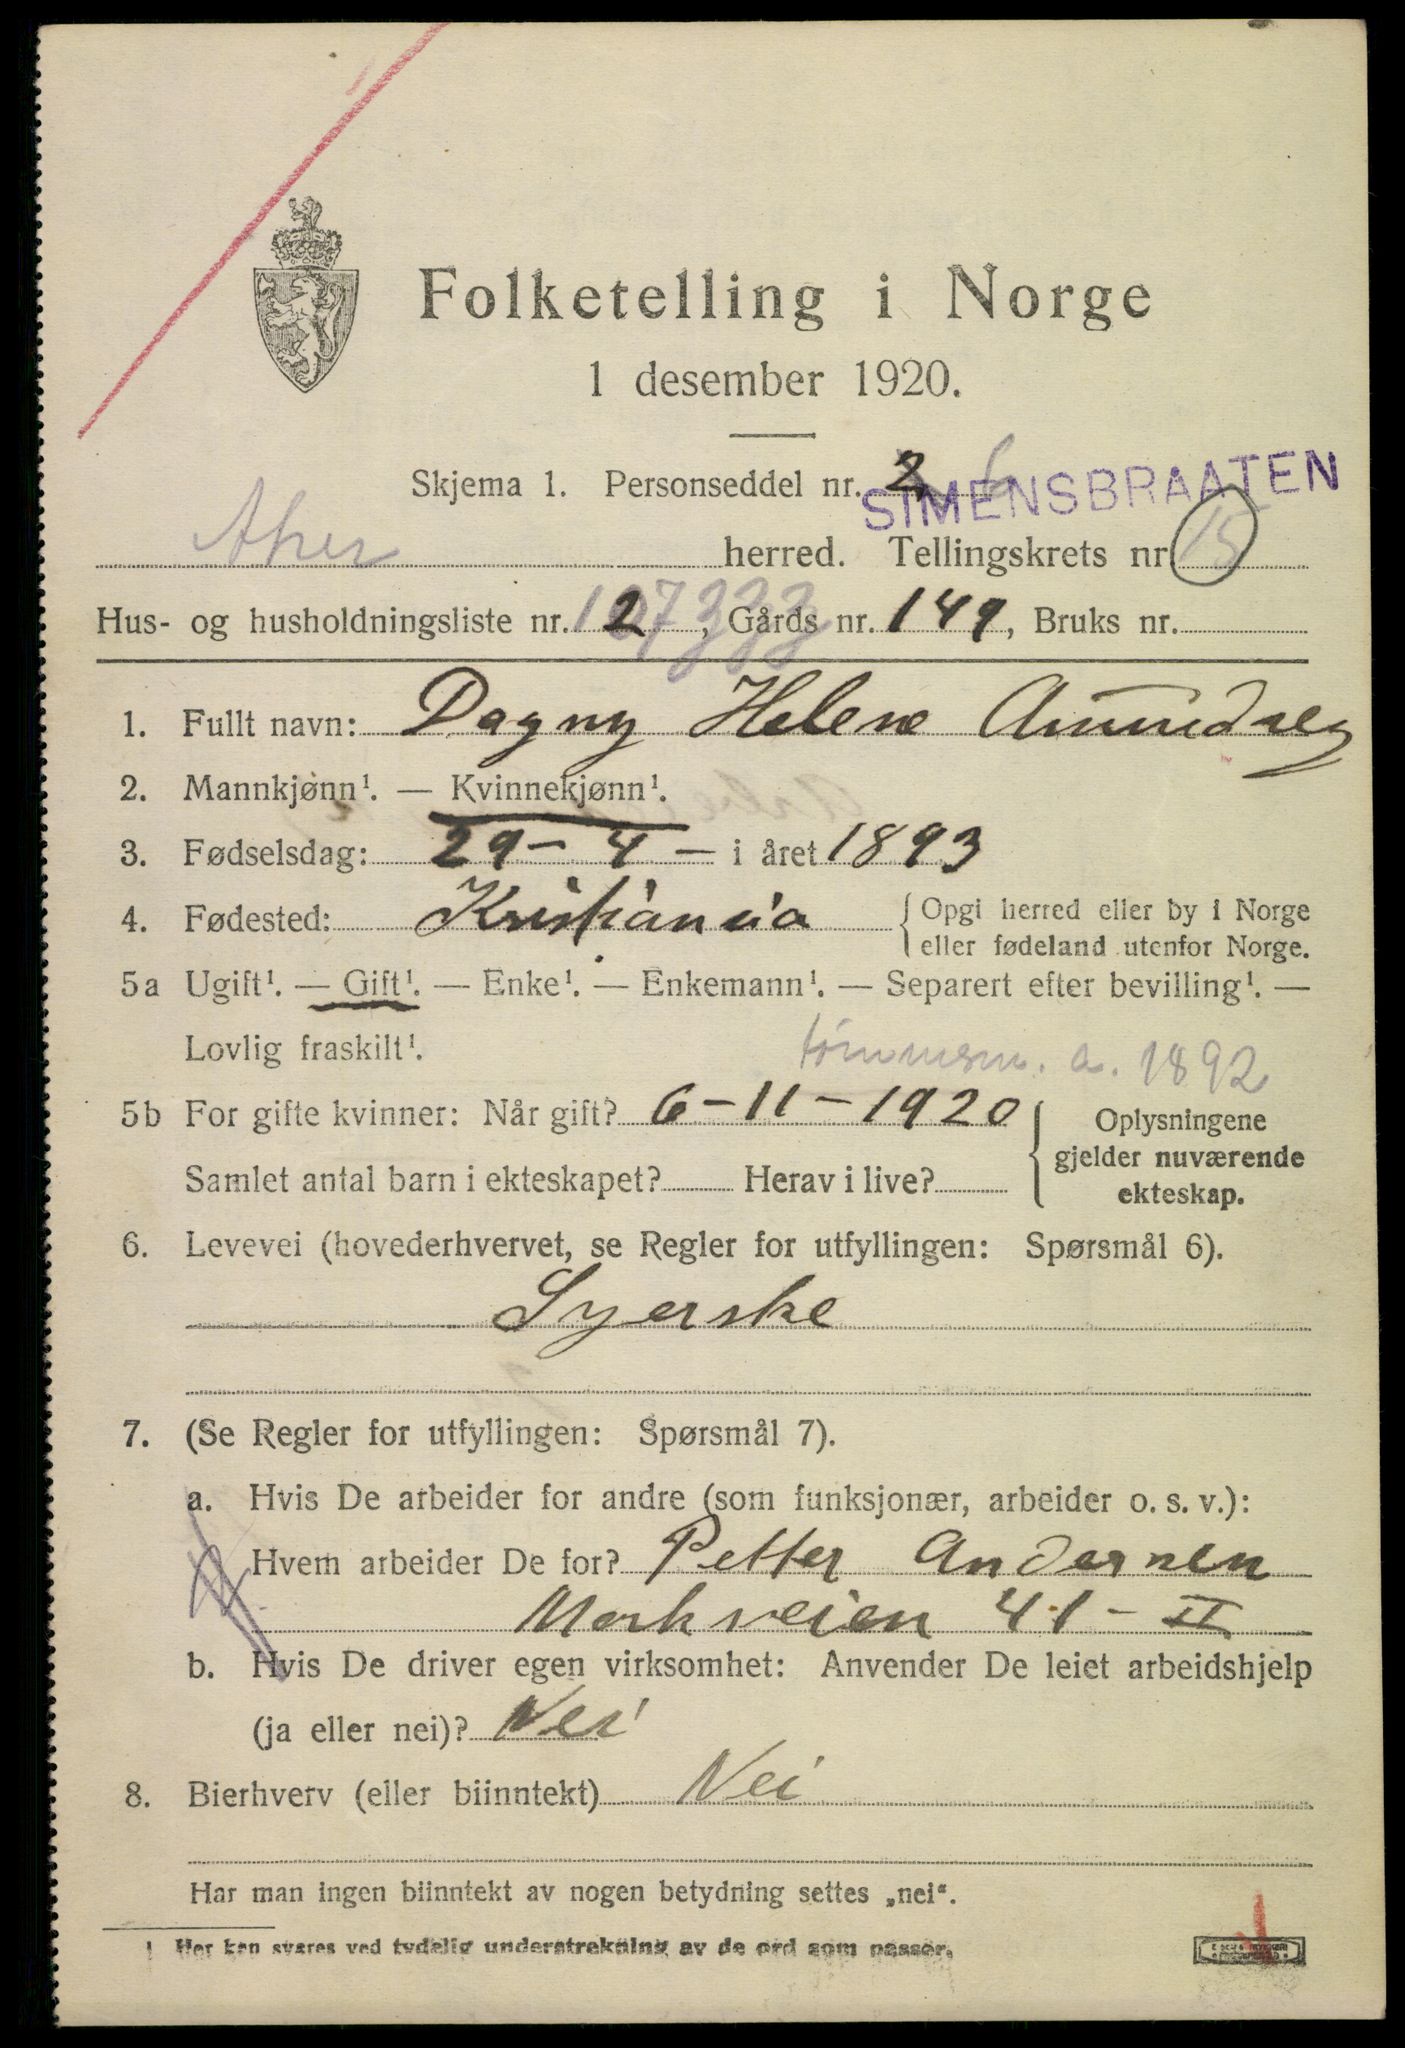 Folketelling i Norge
1 desember 1920.
Skjema 1. Personseddel nr. 2
SIMENSBRAATEN
Aker herred. Tellingskrets nr. 15
Hus- og husholdningsliste nr. 2, Gårds nr. 149, Bruks nr.
1. Fullt navn: Dagny Helene
2. Mannkjønn¹. — Kvinnekjønn¹.
3. Fødselsdag: 29 - 4 - i året 1893
4. Fødested: Kristiania { Opgi herred eller by i Norge
eller fødeland utenfor Norge.
5a Ugift¹. — Gift¹. — Enke¹. — Enkemann¹. — Separert efter bevilling¹. —
Lovlig fraskilt¹.
tømmerm. a. 1892
5b For gifte kvinner: Når gift? 6-11-1920 { Oplysningene
gjelder nuværende
Samlet antal barn i ekteskapet? Herav i live? ekteskap.
6. Levevei (hovederhvervet, se Regler for utfyllingen: Spørsmål 6).
Syerske
7. (Se Regler for utfyllingen: Spørsmål 7).
a. Hvis De arbeider for andre (som funksjonær, arbeider o. s. v.):
Hvem arbeider De for? Petter Andersen
Markveien 41-II
b. Hvis De driver egen virksomhet: Anvender De leiet arbeidshjelp
(ja eller nei)? Nei
8. Bierhverv (eller biinntekt) Nei
Har man ingen biinntekt av nogen betydning settes „nei“.
1 Her kan svares ved tydelig understrekning av de ord som passer.